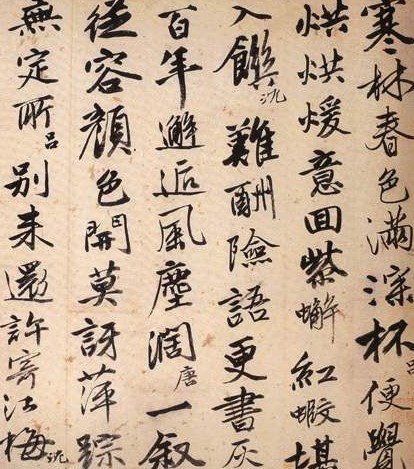 寒林春色滿深杯呂便覺
烘烘煖意回紫蟹紅蝦堪
入饌沈難酬險語更書灰
百年邂逅風塵濶唐一叙
從容顏色開莫訝萍踪
無定所呂別來還許寄江梅沈